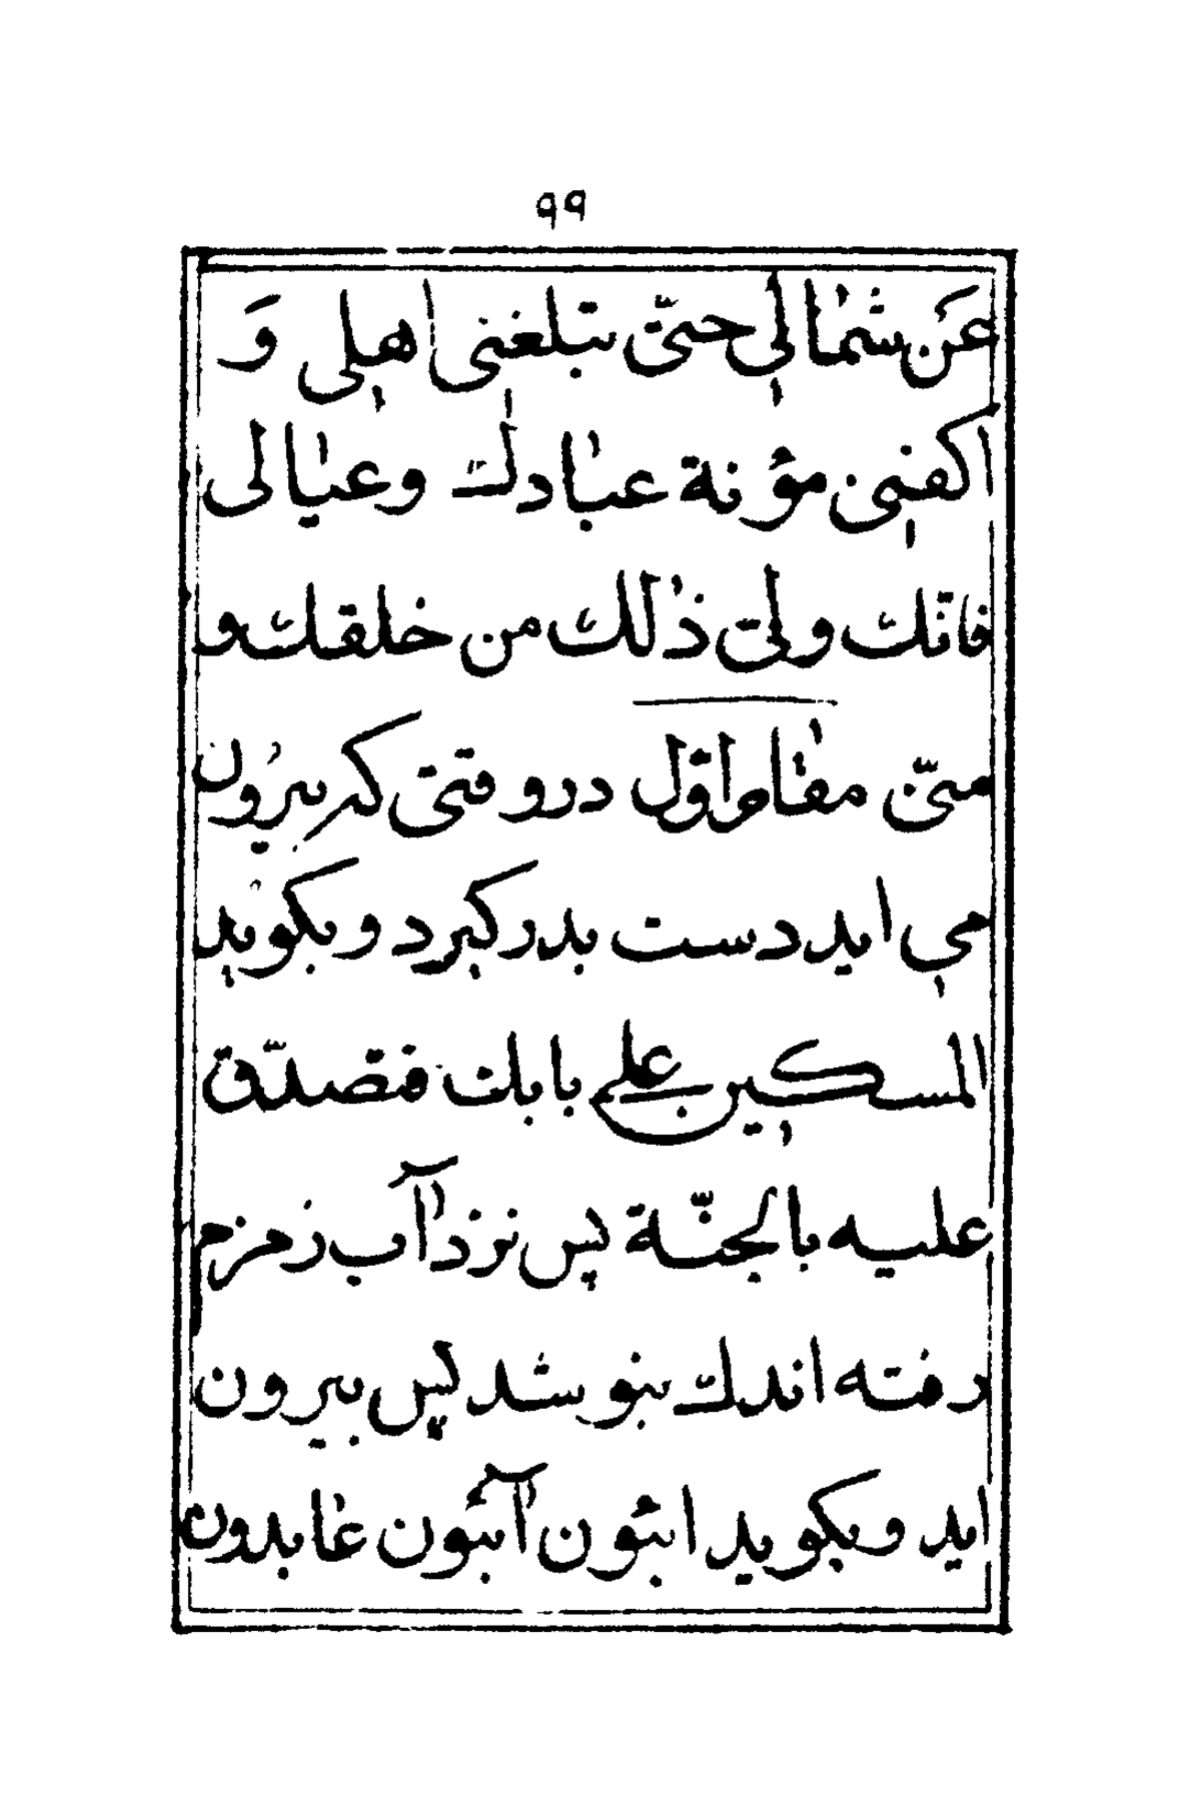 ٩٩
عَن شمٰالي حتّى تبلغنى اهلى وَ
اكفنى مؤنة عبٰادك وعيٰالى
فانّك ولىّ ذٰلك من خلقك و
منّى مقٰام اوّل در وقتى كه بيرون
مى ايد دست بدر كيرد و بكويد
المسكين على بابك فتصدّق
عليه بالجنّة پس نزد آب زمزم
رفته اندك بنوشد پس بيرون
ايد و بكويد ائبون آئبون عٰابدون